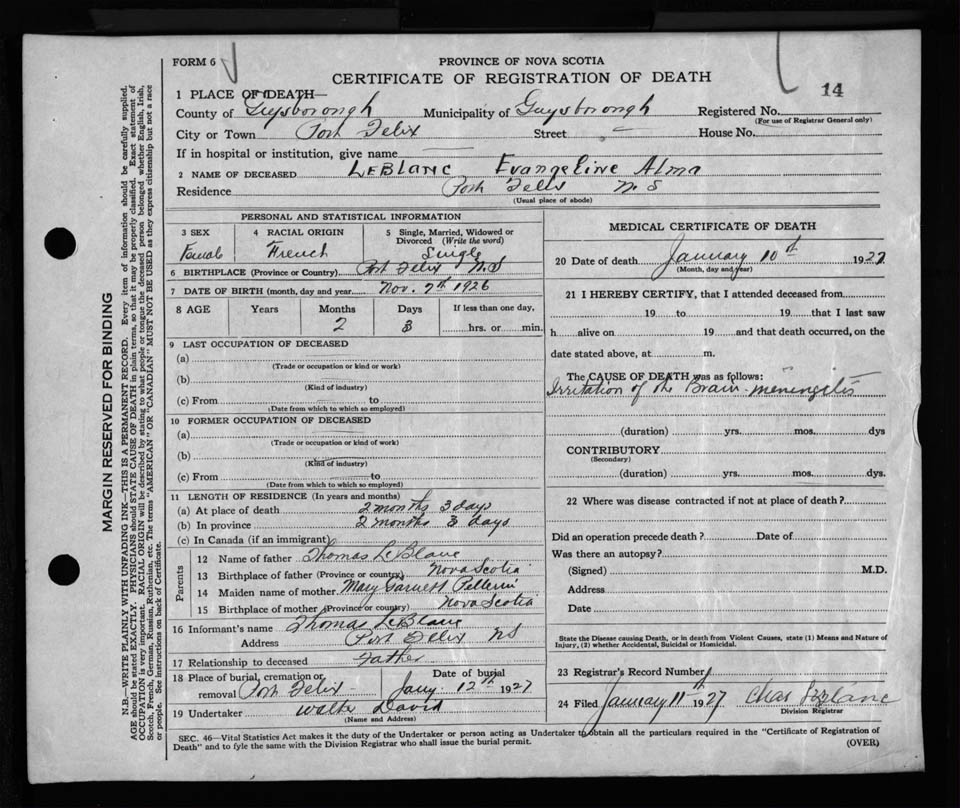 FORM 6
PROVINCE OF NOVA SCOTIA
CERTIFICATE OF REGISTRATION OF DEATH
14
1 PLACE OF DEATH—
County of Guysborough Municipality of Guysborough Registered No.
(For use of Registrar General only)
City or Town Port Felix Street — House No.
If in hospital or institution, give name
2 NAME OF DECEASED LeBlanc Evangeline Alma
Residence Port Felix N.S
(Usual place of abode)
PERSONAL AND STATISTICAL INFORMATION
3 SEX 4 RACIAL ORIGIN 5 Single, Married, Widowed or Divorced (Write the word)
Female French Single
6 BIRTHPLACE (Province or Country) Port Felix N.S
7 DATE OF BIRTH (month, day and year) Nov. 7th 1926
8 AGE Years Months Days If less than one day,
2 3 hrs. or min.
9 LAST OCCUPATION OF DECEASED
(a)
(Trade or occupation or kind or work)
(b)
(Kind of industry)
(c) From to
(Date from which to which so employed)
10 FORMER OCCUPATION OF DECEASED
(a)
(Trade or occupation or kind of work)
(b)
(Kind of industry)
(c) From to
(Date from which to which so employed)
11 LENGTH OF RESIDENCE (In years and months)
(a) At place of death 2 months 3 days
(b) In province 2 months 3 days
(c) In Canada (if an immigrant)
Parents
12 Name of father Thomas LeBlanc
13 Birthplace of father (Province or country) Nova Scotia
14 Maiden name of mother Mary Garnett Pellerin
15 Birthplace of mother (Province or country) Nova Scotia
16 Informant's name Thomas LeBlanc
Address Port Felix NS
17 Relationship to deceased Father
18 Place of burial, cremation or removal Port Felix Date of burial Jany. 12th 1927
19 Undertaker Walter David
(Name and Address)
MEDICAL CERTIFICATE OF DEATH
20 Date of death January 10th 1927
(Month, day and year)
21 I HEREBY CERTIFY, that I attended deceased from
19 to 19 that I last saw
h alive on 19 and that death occurred, on the
date stated above, at m.
The CAUSE OF DEATH was as follows:
Irritation of the Brain - meningitis
(duration) yrs. mos. dys
CONTRIBUTORY
(Secondary)
(duration) yrs. mos. dys.
22 Where was disease contracted if not at place of death?
Did an operation precede death? Date of
Was there an autopsy?
(Signed) M.D.
Address
Date
State the Disease causing Death, or in death from Violent Causes, state (1) Means and Nature of
Injury, (2) whether Accidental, Suicidal or Homicidal.
23 Registrar's Record Number 1
24 Filed January 11th 1927 Chas
Division Registrar
SEC. 46—Vital Statistics Act makes it the duty of the Undertaker or person acting as Undertaker to obtain all the particulars required in the "Certificate of Registration of
Death" and to fyle the same with the Division Registrar who shall issue the burial permit.
(OVER)
MARGIN RESERVED FOR BINDING
N.B.—WRITE PLAINLY WITH UNFADING INK—THIS IS A PERMANENT RECORD. Every item of information should be carefully supplied.
AGE should be stated EXACTLY. PHYSICIANS should STATE CAUSE OF DEATH in plain terms, so that it may be properly classified. Exact statement of
OCCUPATION is very important. RACIAL ORIGIN will be described by stating to what people or tongue the deceased person belonged whether English, Irish,
Scotch, French, German, Russian, Ruthenian, etc. The terms "AMERICAN" OR "CANADIAN" MUST NOT BE USED as they express citizenship but not a race
or people. See instructions on back of Certificate.